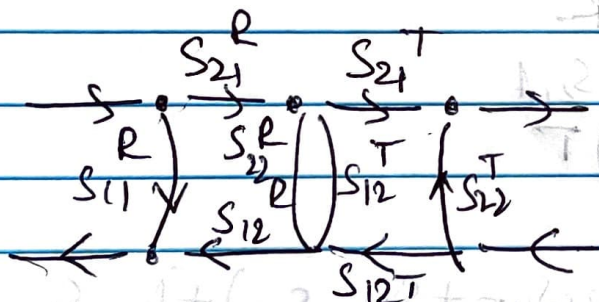 S21^R S21^T
S11^R S22^R S12^T S22^T
S12^R
S12^T